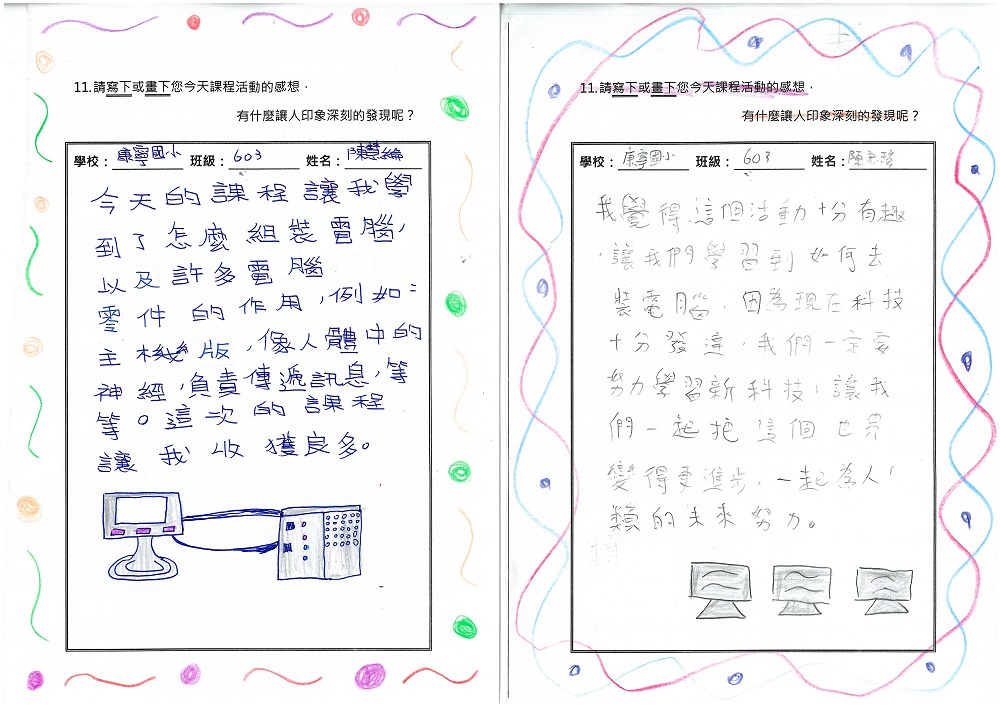 11.請寫下或畫下您今天課程活動的感想，
有什麼讓人印象深刻的發現呢？
學校：康寧國小 班級：603 姓名：陳慧綸
今天的課程讓我學
到了怎麼組裝電腦，
以及許多電腦
零件的作用，例如：
主機版，像人體中的
神經，負責傳遞訊息，等
等。這次的課程
讓我收獲良多。
11.請寫下或畫下您今天課程活動的感想，
有什麼讓人印象深刻的發現呢？
學校：康寧國小 班級：603 姓名：陳
我覺得這個活動十分有趣
，讓我們學習到如何去
裝電腦，因為現在科技
十分發達，我們一定要
努力學習新科技，讓我
們一起把這個世界
變得更進步，一起為人
類的未來努力。